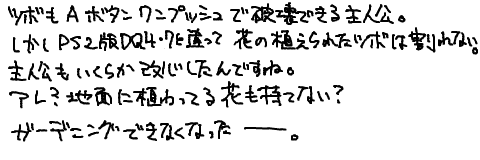 ツボも A ボタン ワンプッシュで破壊できる主人公。
しかし PS2版DQ4・7と違って 花の植えられたツボは割れない。
主人公もいくらか改心したんですね。
アレ? 地面に植わってる花も持てない?
ガーデニングできなくなった ――。